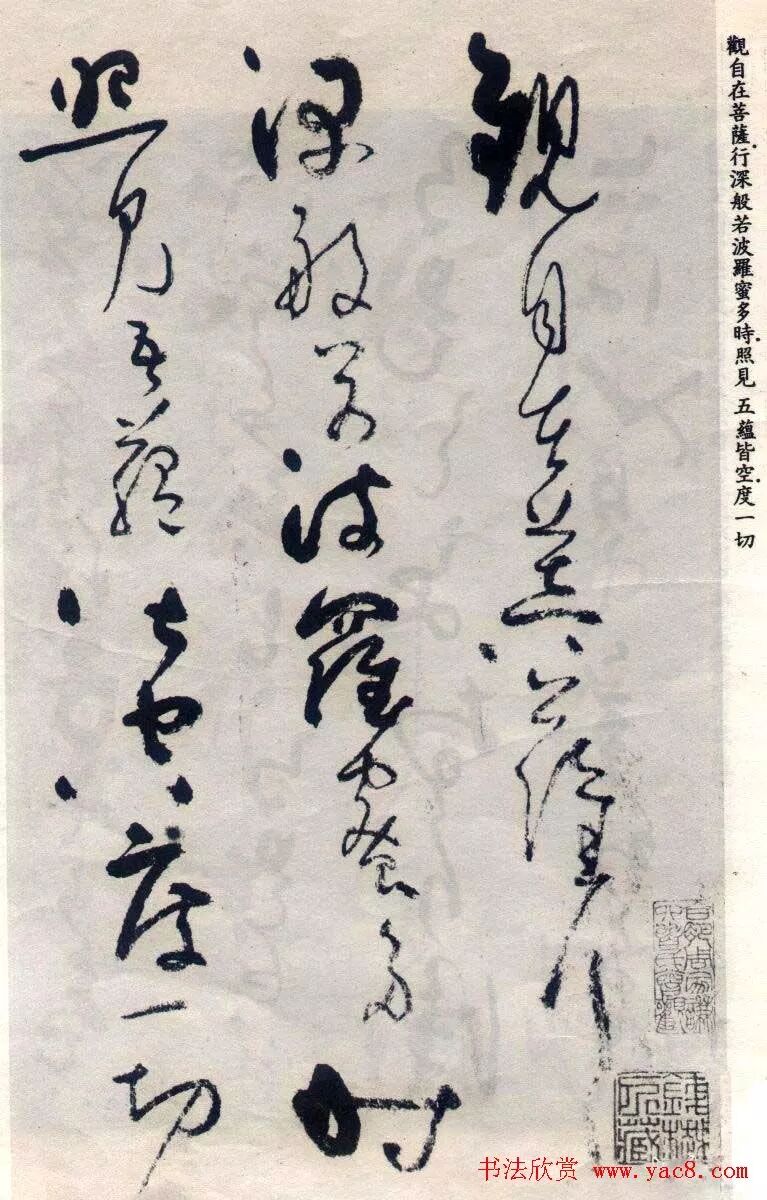 觀自在菩薩.行深般若波羅蜜多時.照見 五蘊皆空.度一切
觀自在菩薩行
深般若波羅蜜多時
照見五蘊皆空度一切
书法欣赏 www.yac8.com